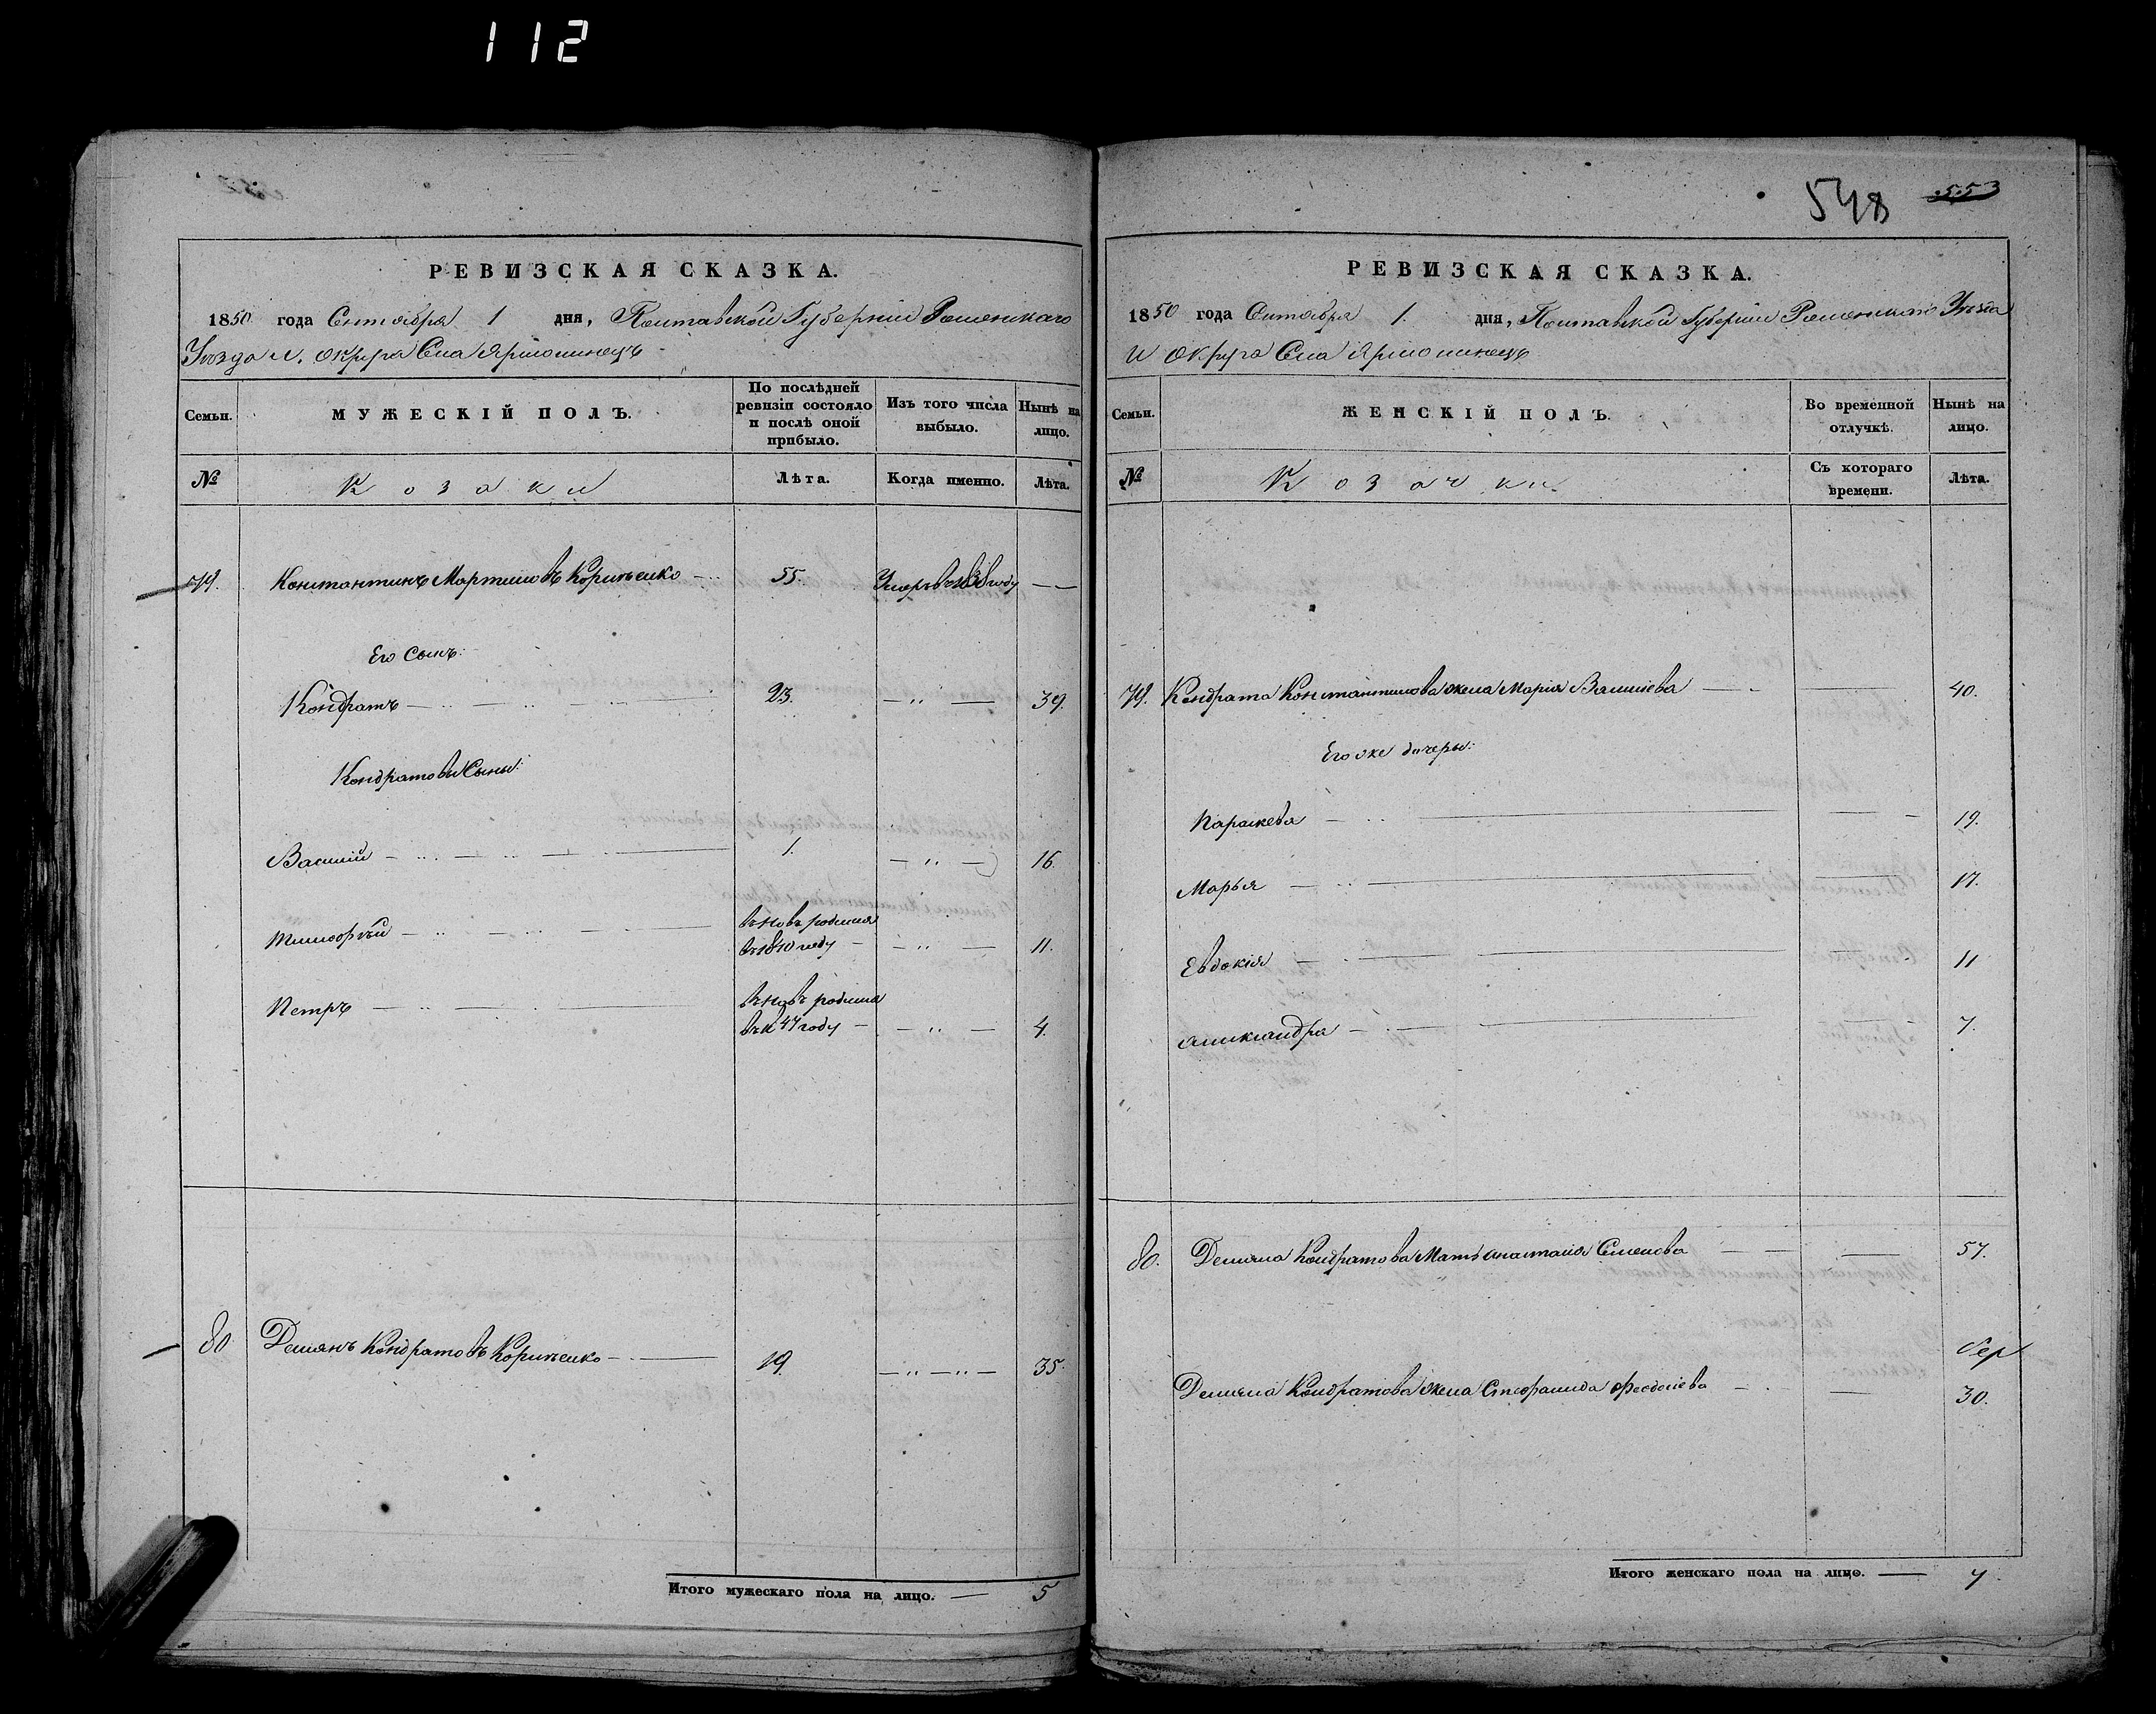 112
548 553
РЕВИЗСКАЯ СКАЗКА.
1850 года Октября 1 дня, Полтавской Губерніи Роменскаго
Уѣзда и округа Села Ярмолинецъ
Семьи.
МУЖЕСКІЙ ПОЛЪ.
По послѣдней ревизіи состояло и послѣ оной прибыло.
Изъ того числа выбыло.
Нынѣ на лицо.
№
Козаки
Лѣта.
Когда именно.
Лѣта.
79. Константинъ Мартиновъ 55. Умеръ въ 1838 году
Его Сынъ:
Кондратъ 23. 39.
Кондратовы Сыны:
Василий 1. 16.
Тимофѣй вновь родился
въ 1840 году 11.
Петръ вновь родился
въ 47 году 4.
80 Демянъ Кондратовъ 19. 35.
Итого мужескаго пола на лицо. 5
РЕВИЗСКАЯ СКАЗКА.
1850 года Октября 1. дня, Полтавской Губерніи Роменскаго Уѣзда
и округа Села Ярмолинецъ
Семьи.
ЖЕНСКІЙ ПОЛЪ.
Во временной отлучкѣ.
Нынѣ на лицо.
№
Козачки
Съ котораго времени.
Лѣта.
79. Кондрата Константинова жена Марія Васильева 40.
Его же дочеры:
Параскева 19.
Марья 17.
Евдокія 11
Александра 7.
80. Демяна Кондратова Мать Анастасія Семенова 57.
Демяна Кондратова жена Стефанида Феодосіева 30.
Итого женскаго пола на лицо. 7